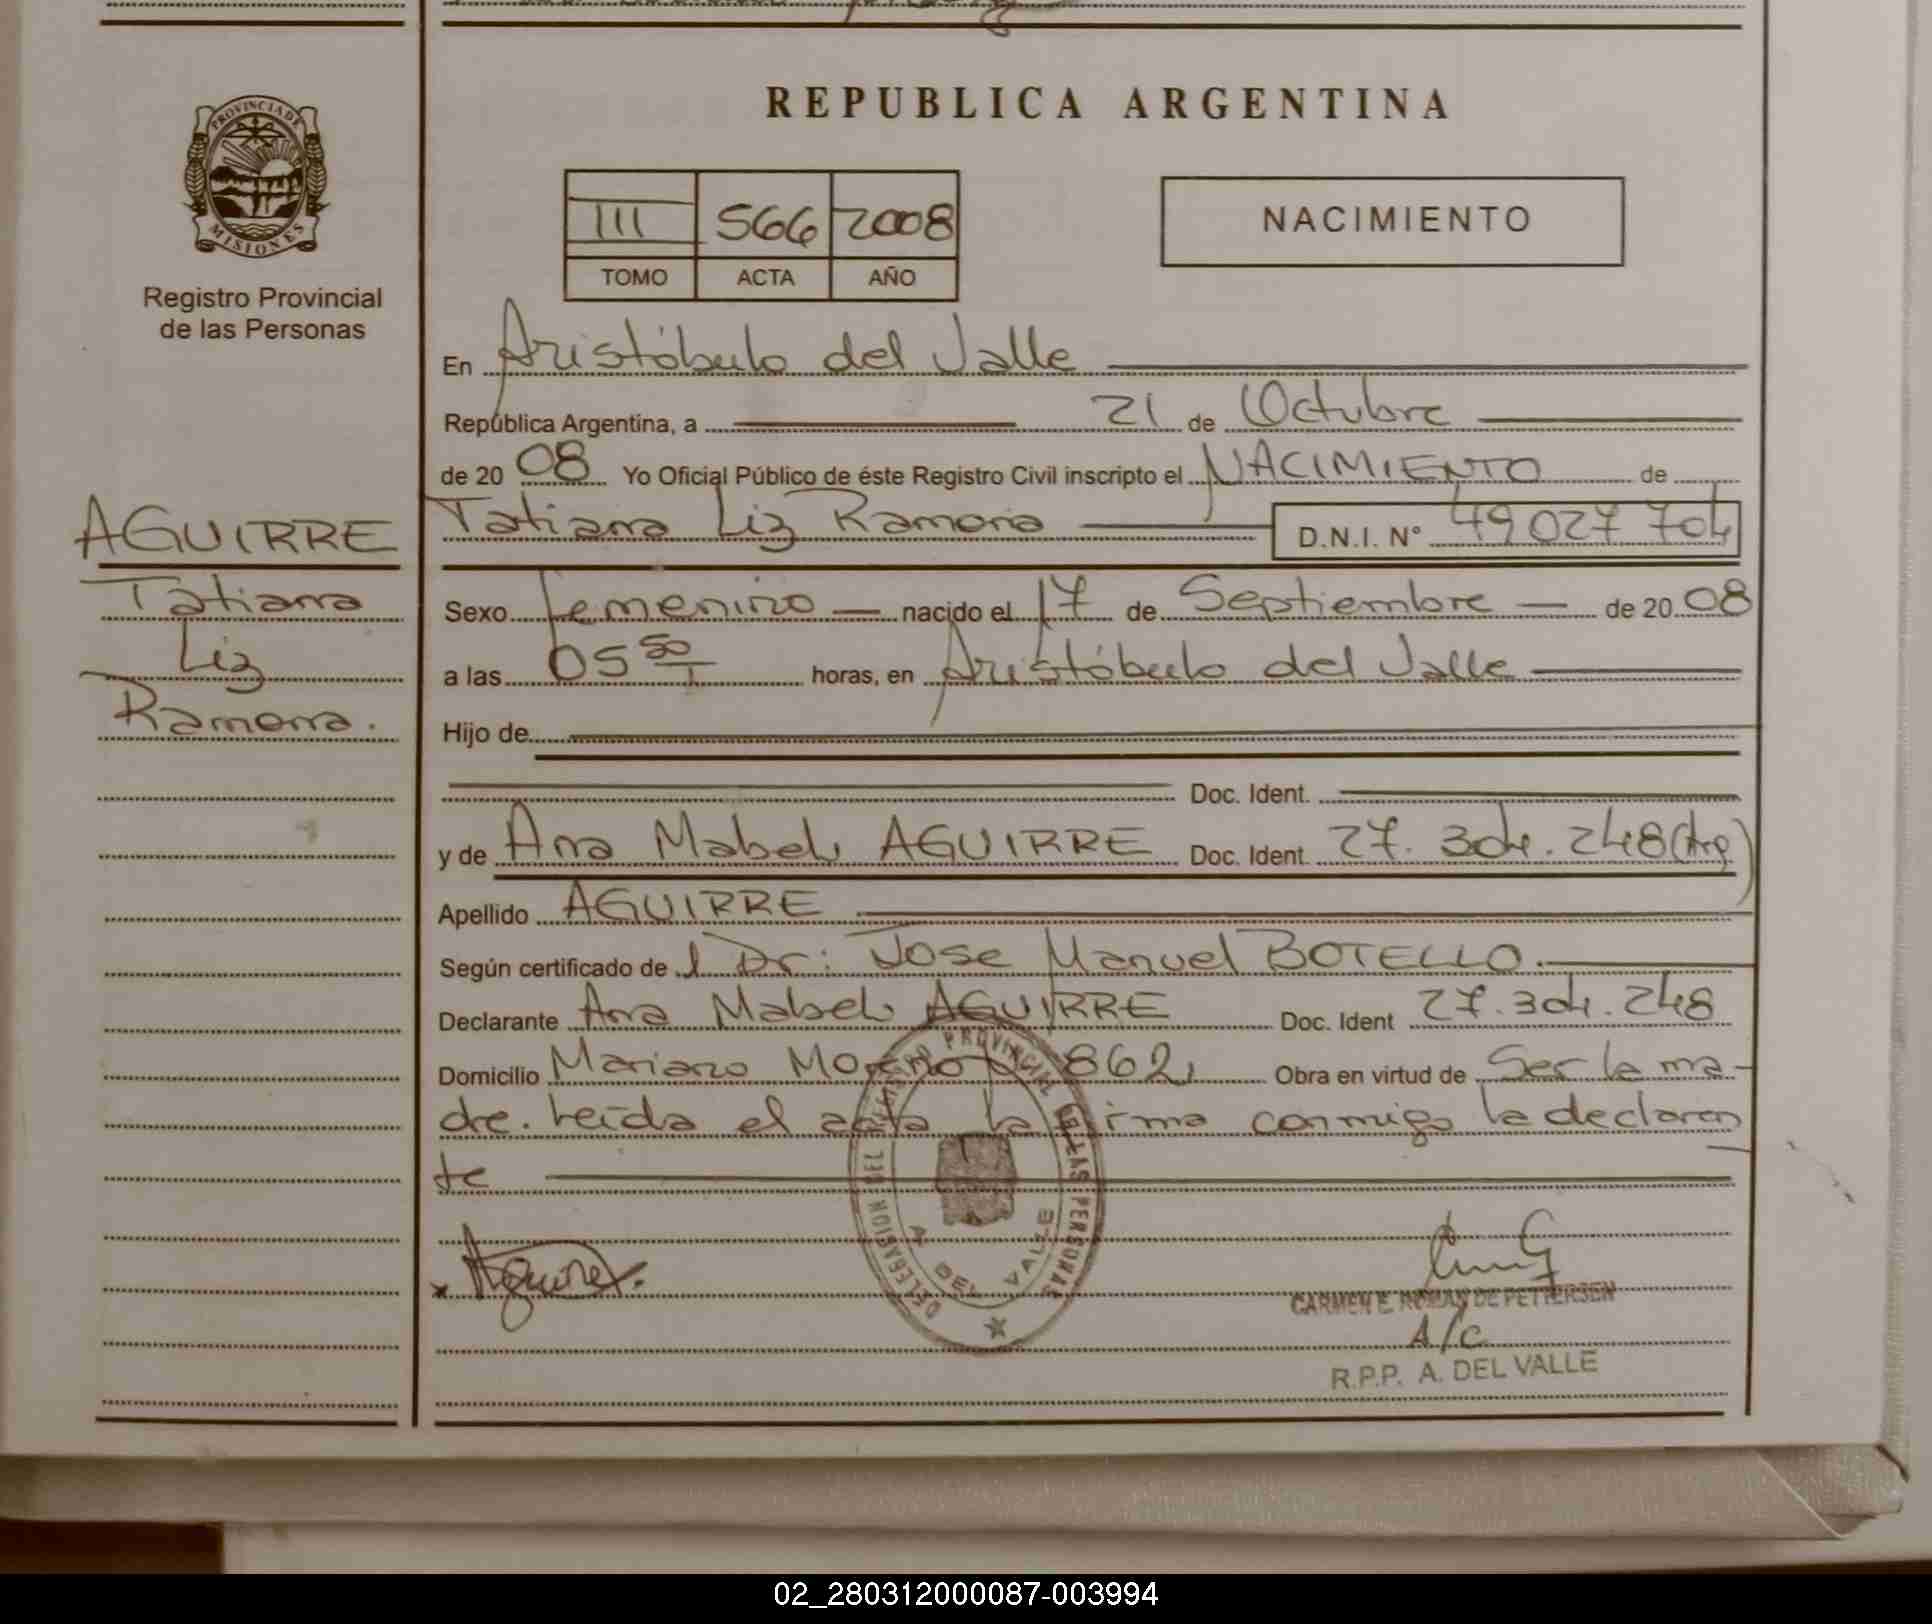 REPUBLICA ARGENTINA
PROVINCIA DE
MISIONES
Registro Provincial
de las Personas
III 566 2008
TOMO ACTA AÑO
NACIMIENTO
En Aristóbulo del Valle
República Argentina, a 21 de Octubre
de 20 08 Yo Oficial Público de éste Registro Civil inscripto el NACIMIENTO de
Tatiana Liz Ramona D.N.I. N° 49 027 704
AGUIRRE
Tatiana
Liz
Ramona.
Sexo Femenino nacido el 17 de Septiembre de 20 08
a las 05 50 horas, en Aristóbulo del Valle
Hijo de
Doc. Ident.
y de Ana Mabel AGUIRRE Doc. Ident. 27.304.248 (Arg)
Apellido AGUIRRE
Según certificado de l Dr: Jose Manuel BOTELLO.
Declarante Ana Mabel AGUIRRE Doc. Ident 27.304.248
Domicilio Mariano Moreno 862, Obra en virtud de Ser la ma-
dre. Leída el acta la firma conmigo la declaran
te
DELEGACION DEL REGISTRO PROVINCIAL DE LAS PERSONAS
A. DEL VALLE
Aguirre.
CARMEN E. ROMAN DE PETTERSEN
A/C
R.P.P. A. DEL VALLE
02_280312000087-003994